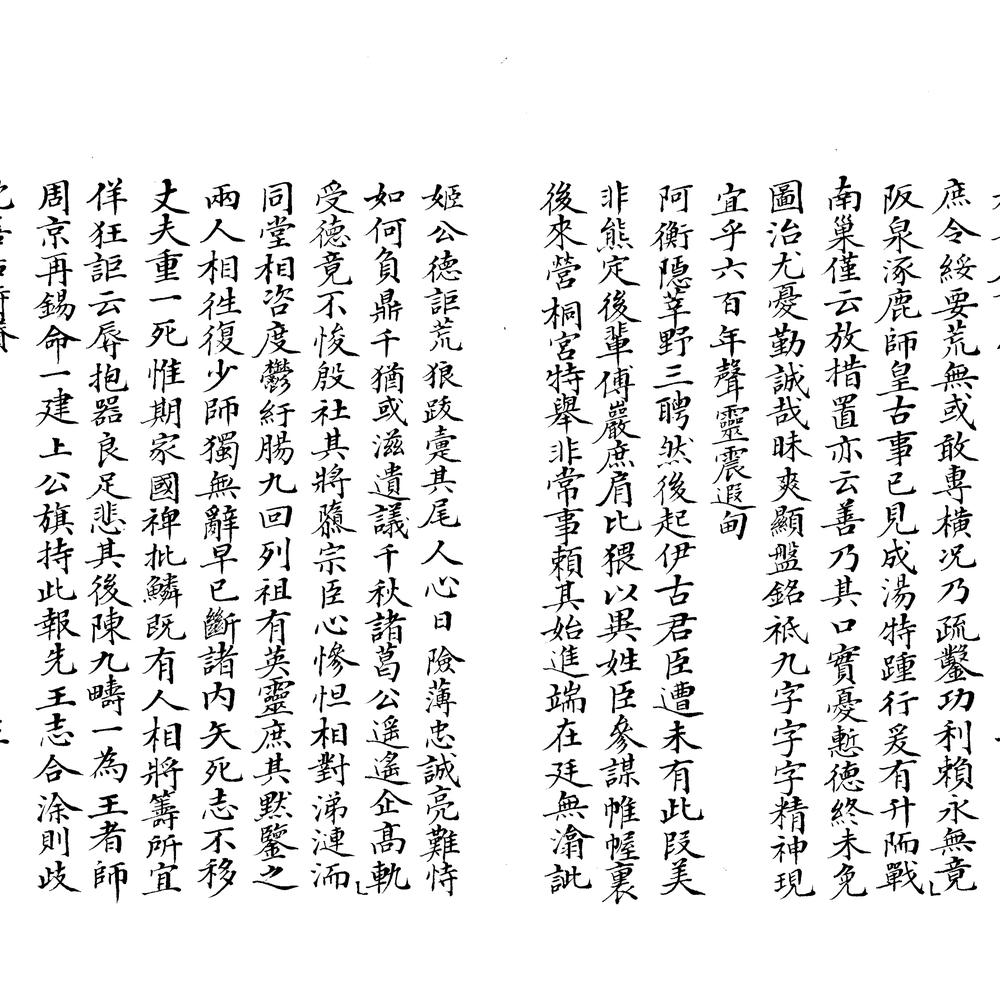 庶令綏要荒無或敢專橫况乃疏鑿功利賴永無竟
阪泉涿鹿師皇古事已見成湯特踵行爰有升陑戰
南巢僅云放措置亦云善乃其口實憂慙德終未免
圖治尤憂勤誠哉昧爽顯盤銘祗九字字字精神現
宜乎六百年聲靈震遐甸
阿衡隱莘野三聘然後起伊古君臣遭未有此段美
非熊定後輩傅巖庶肩比猥以異姓臣參謀帷幄裏
後來營桐宮特舉非常事賴其始進端在廷無潝訿
姬公德詎荒狼跋疐其尾人心日險薄忠誠亮難恃
如何負鼎千猶或滋遺議千秋諸葛公遥遥企高軌
受德竟不悛殷社其將隳宗臣心慘怛相對涕漣洏
同堂相咨度鬱紆腸九回列祖有英靈庶其默鑒之
兩人相徃復少師獨無辭早已斷諸内矢死志不移
丈夫重一死惟期家國裨批鱗既有人相將籌所宜
佯狂詎云辱抱器良足悲其後陳九疇一為王者師
周京再錫命一建上公旗持此報先王志合涂則歧